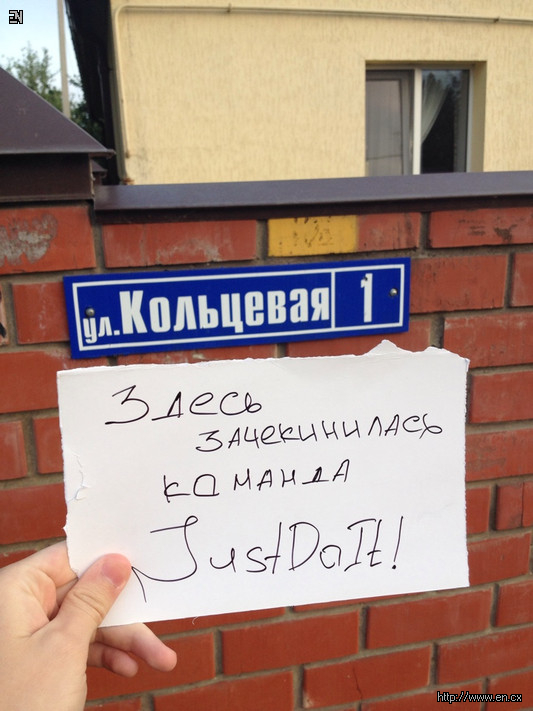 EN
ул.Кольцевая 1
Здесь
зачекинилась
команда
JustDoIt!
http://www.en.cx